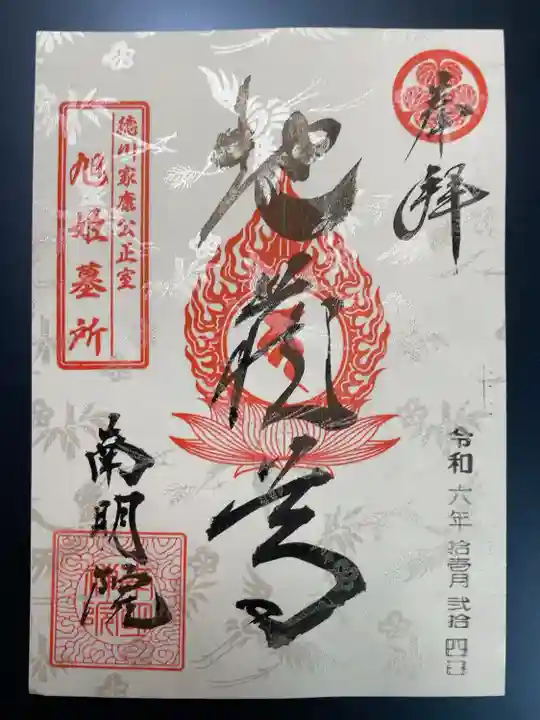 奉拝
令和六年拾壱月弐拾四日
地蔵尊
徳川家康公正室
旭姫墓所
南明院